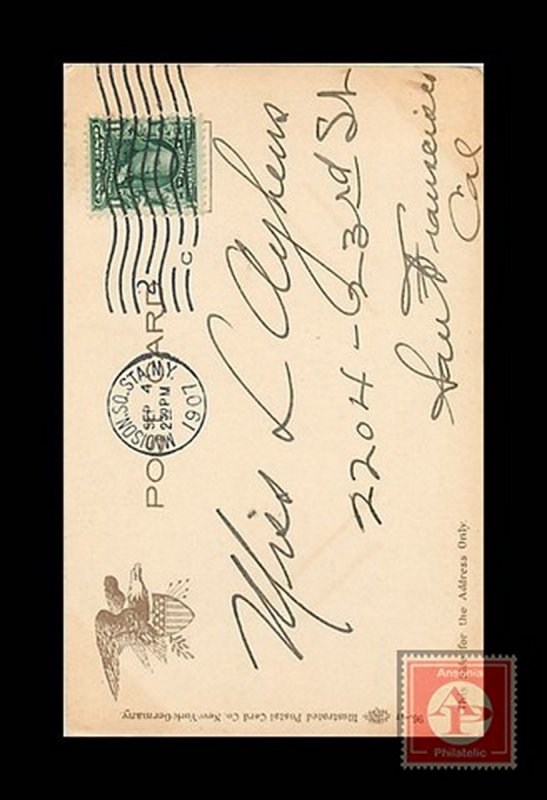 POST CARD
MADISON.SQ.STA.N.Y.
SEP 4
230 PM
1907
C
Miss L
2204-23rd St
San Francisco
Cal
This Side for the Address Only.
Illustrated Postal Card Co. New York-Germany.
Ansonia
Philatelic